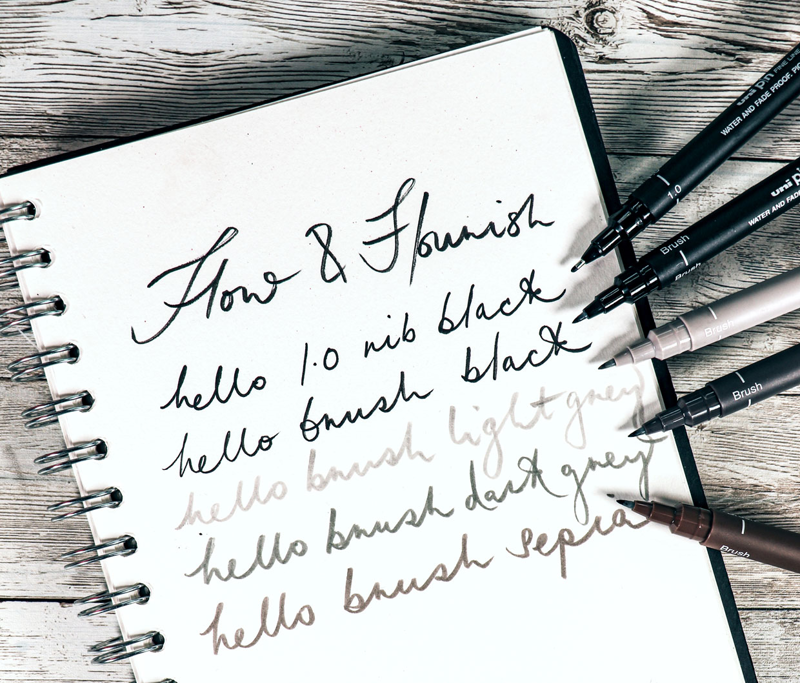 Flow & Flourish
hello 1.0 nib black
hello brush black
hello brush light grey
hello brush dark grey
hello brush sepia
uni pin FINE LINE
WATER AND FADE PROOF, PIG
1.0
uni p
WATER AND FADE
Brush
Brush
Brush
Brush
Brush